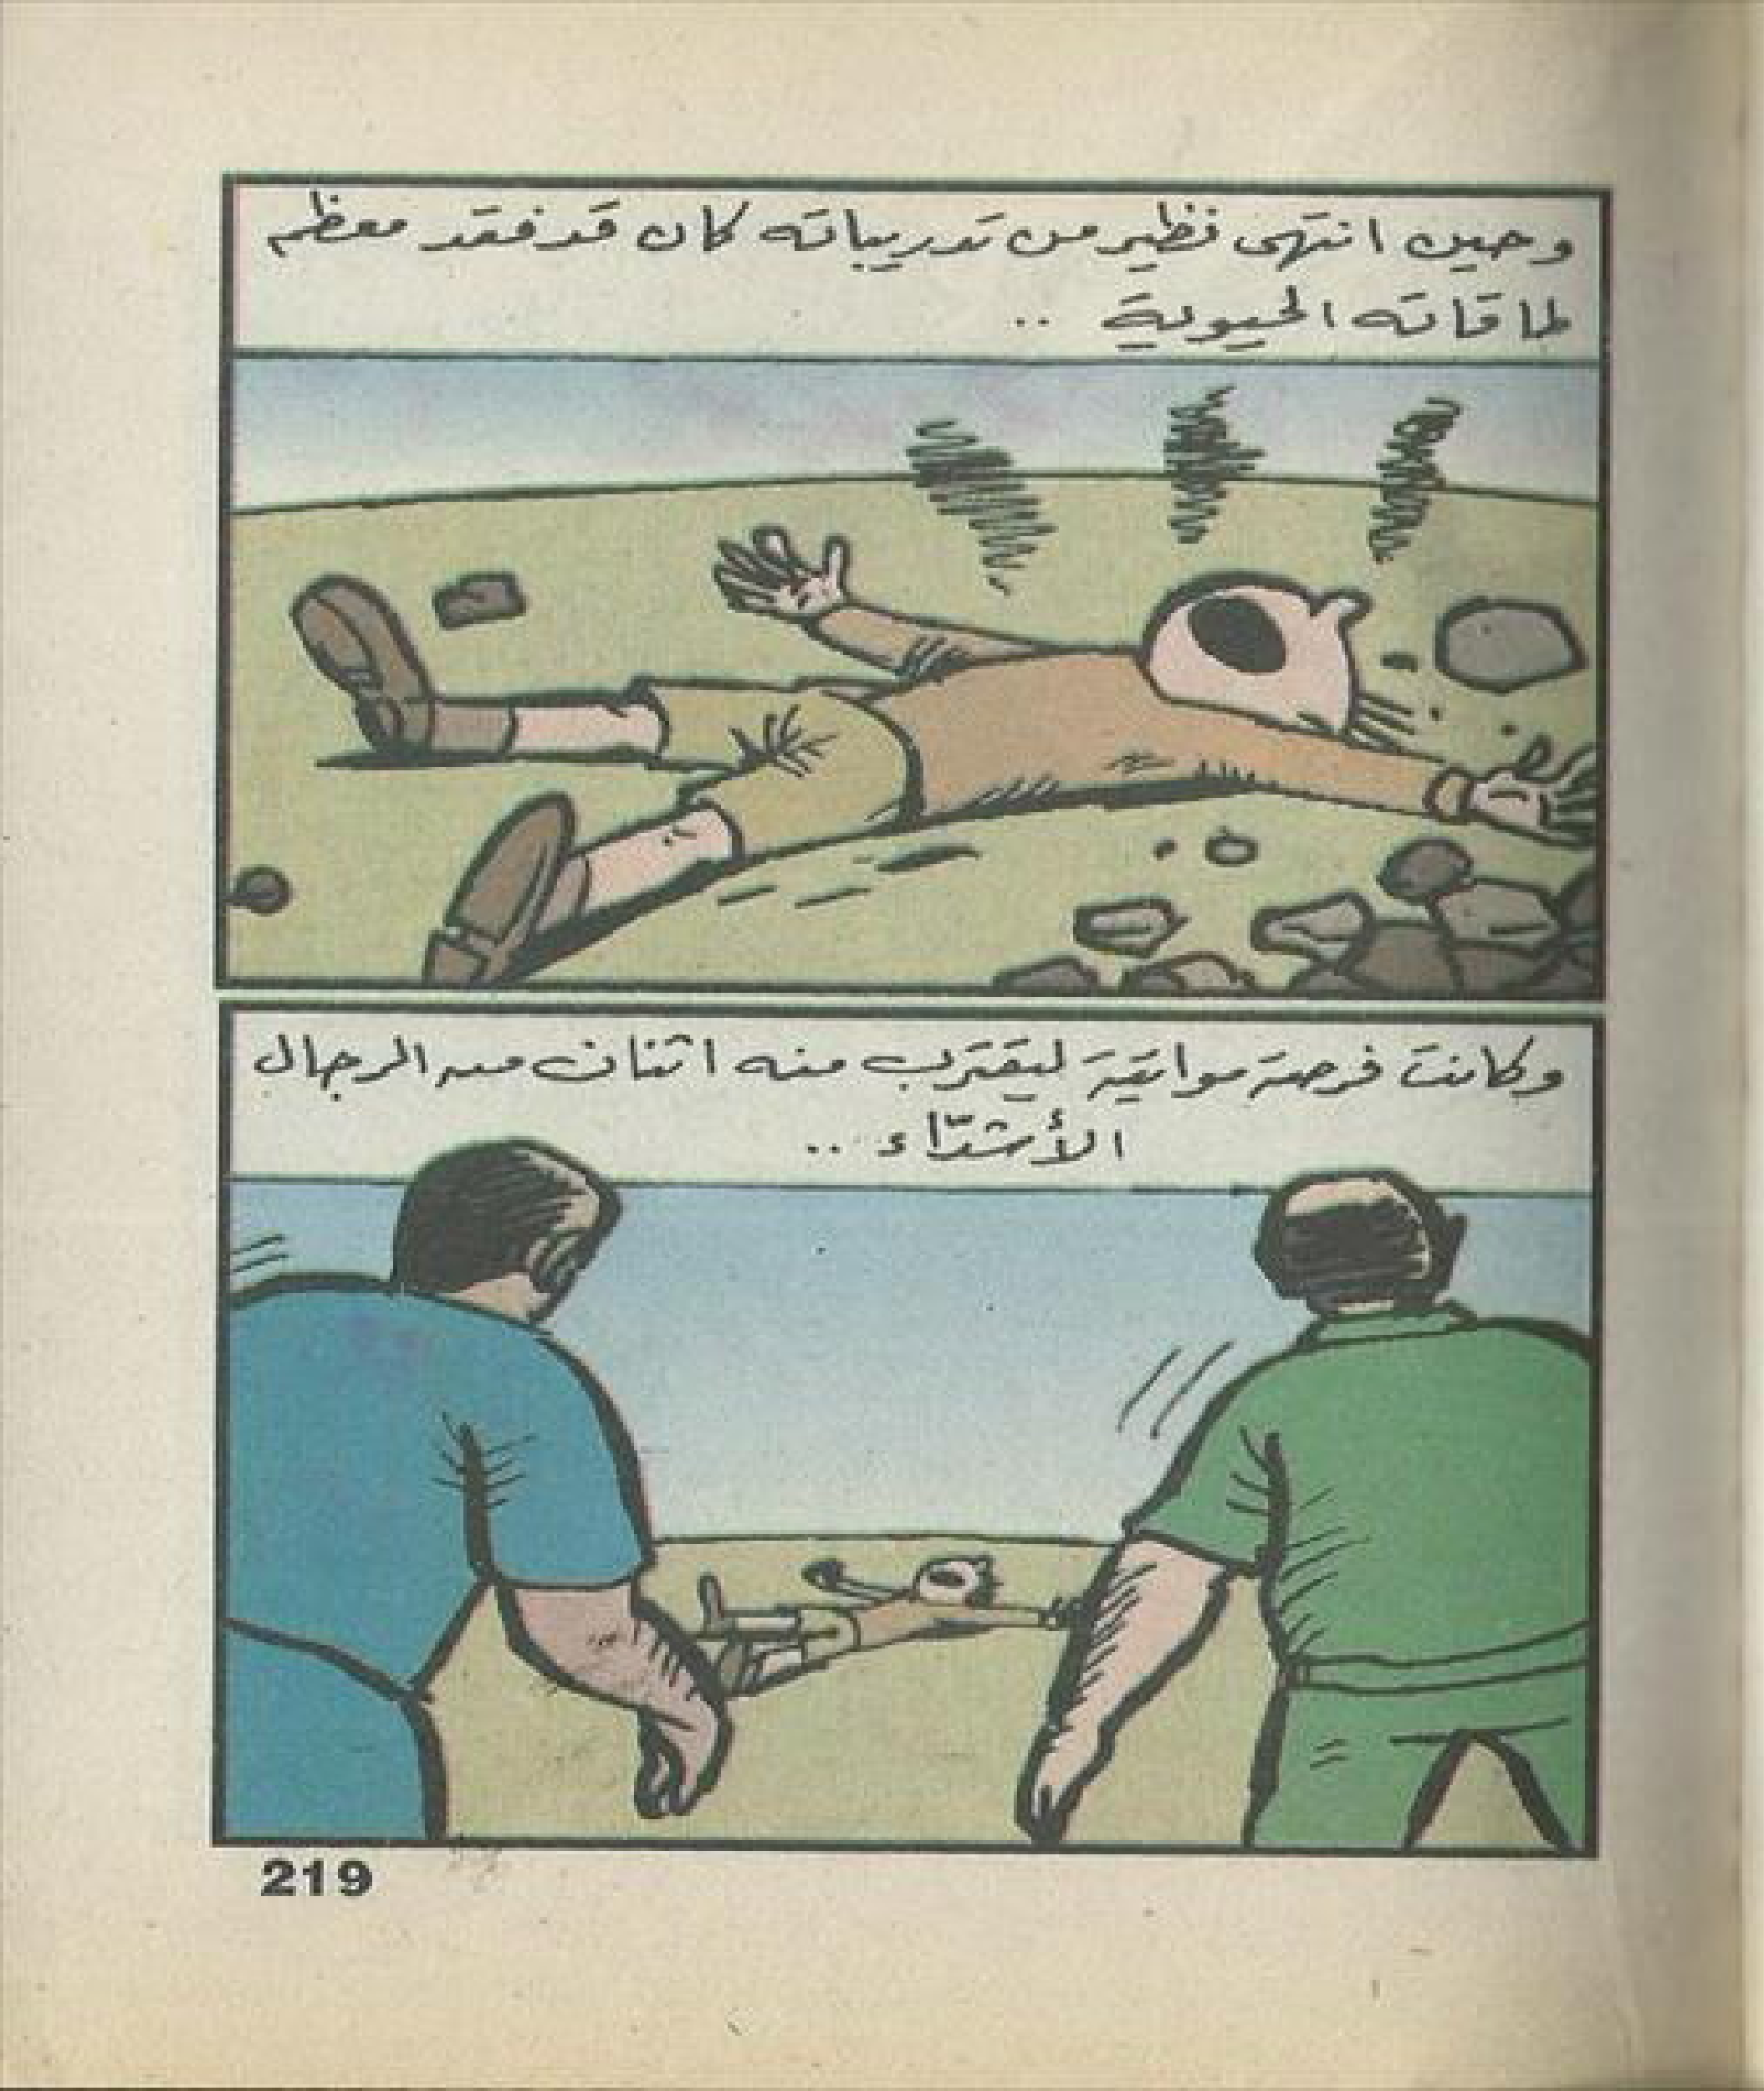 وحين انتهى نظير من تدريباته كان قد فقد معظم
طاقاته الحيوية ..
وكانت فرصة مواتية ليقترب منه اثنان من الرجال
الأشدّاء ..
219